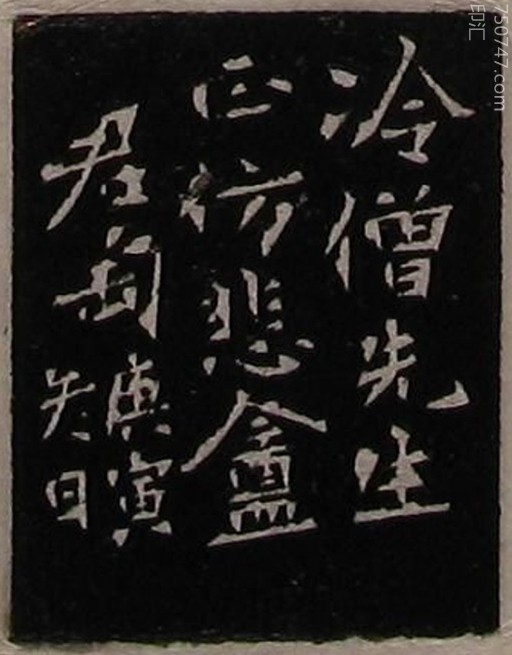 冷僧先生
正仿悲盦
君匋庚寅
日
750747.com
印汇